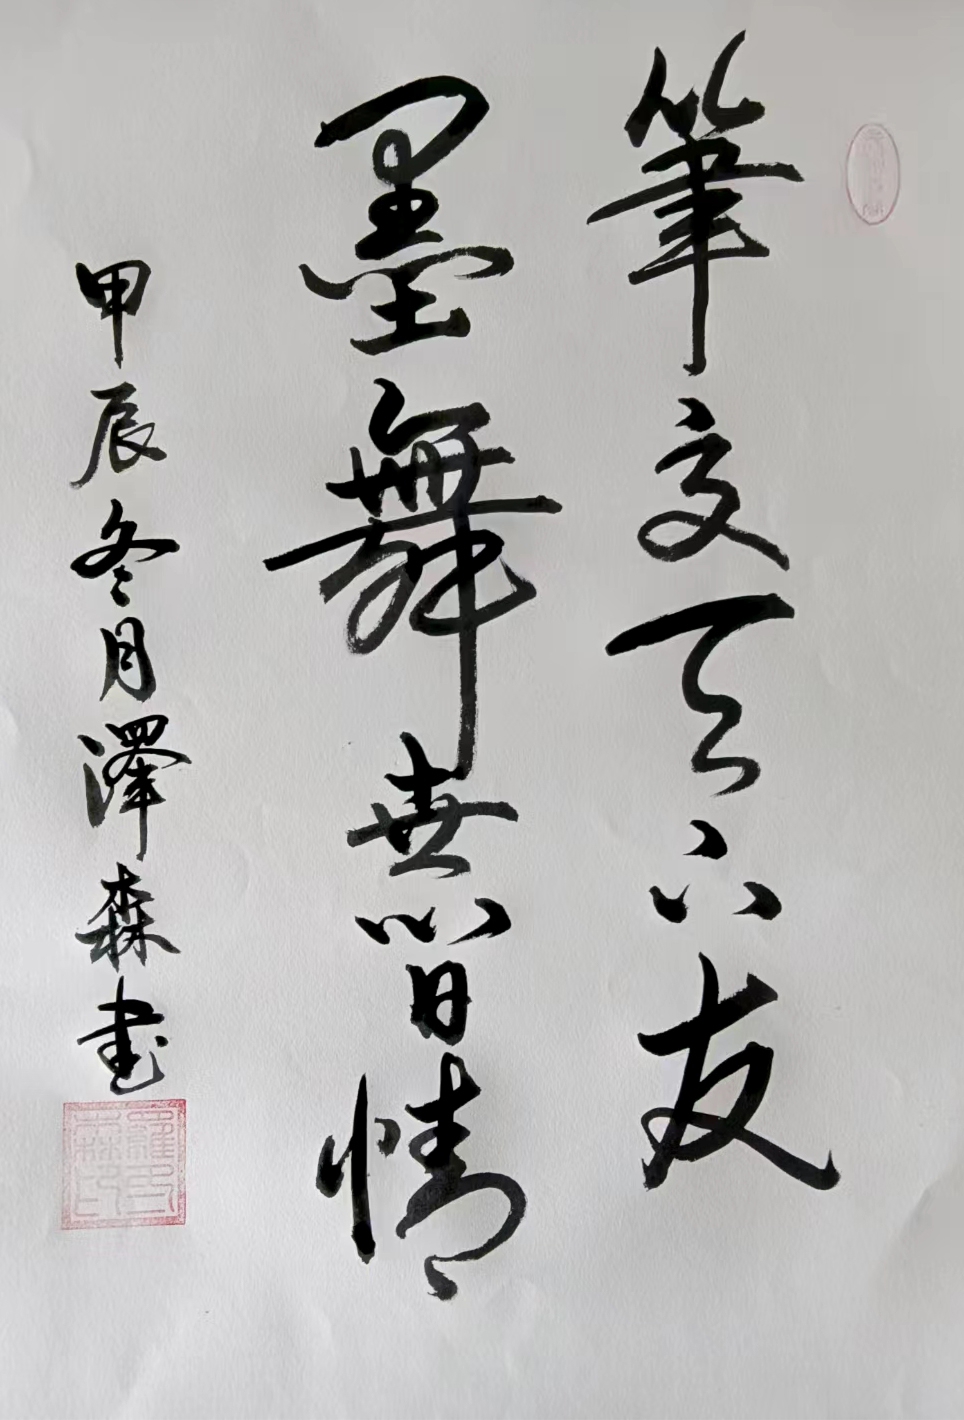 筆交天下友
墨舞世間情
甲辰冬月澤森書